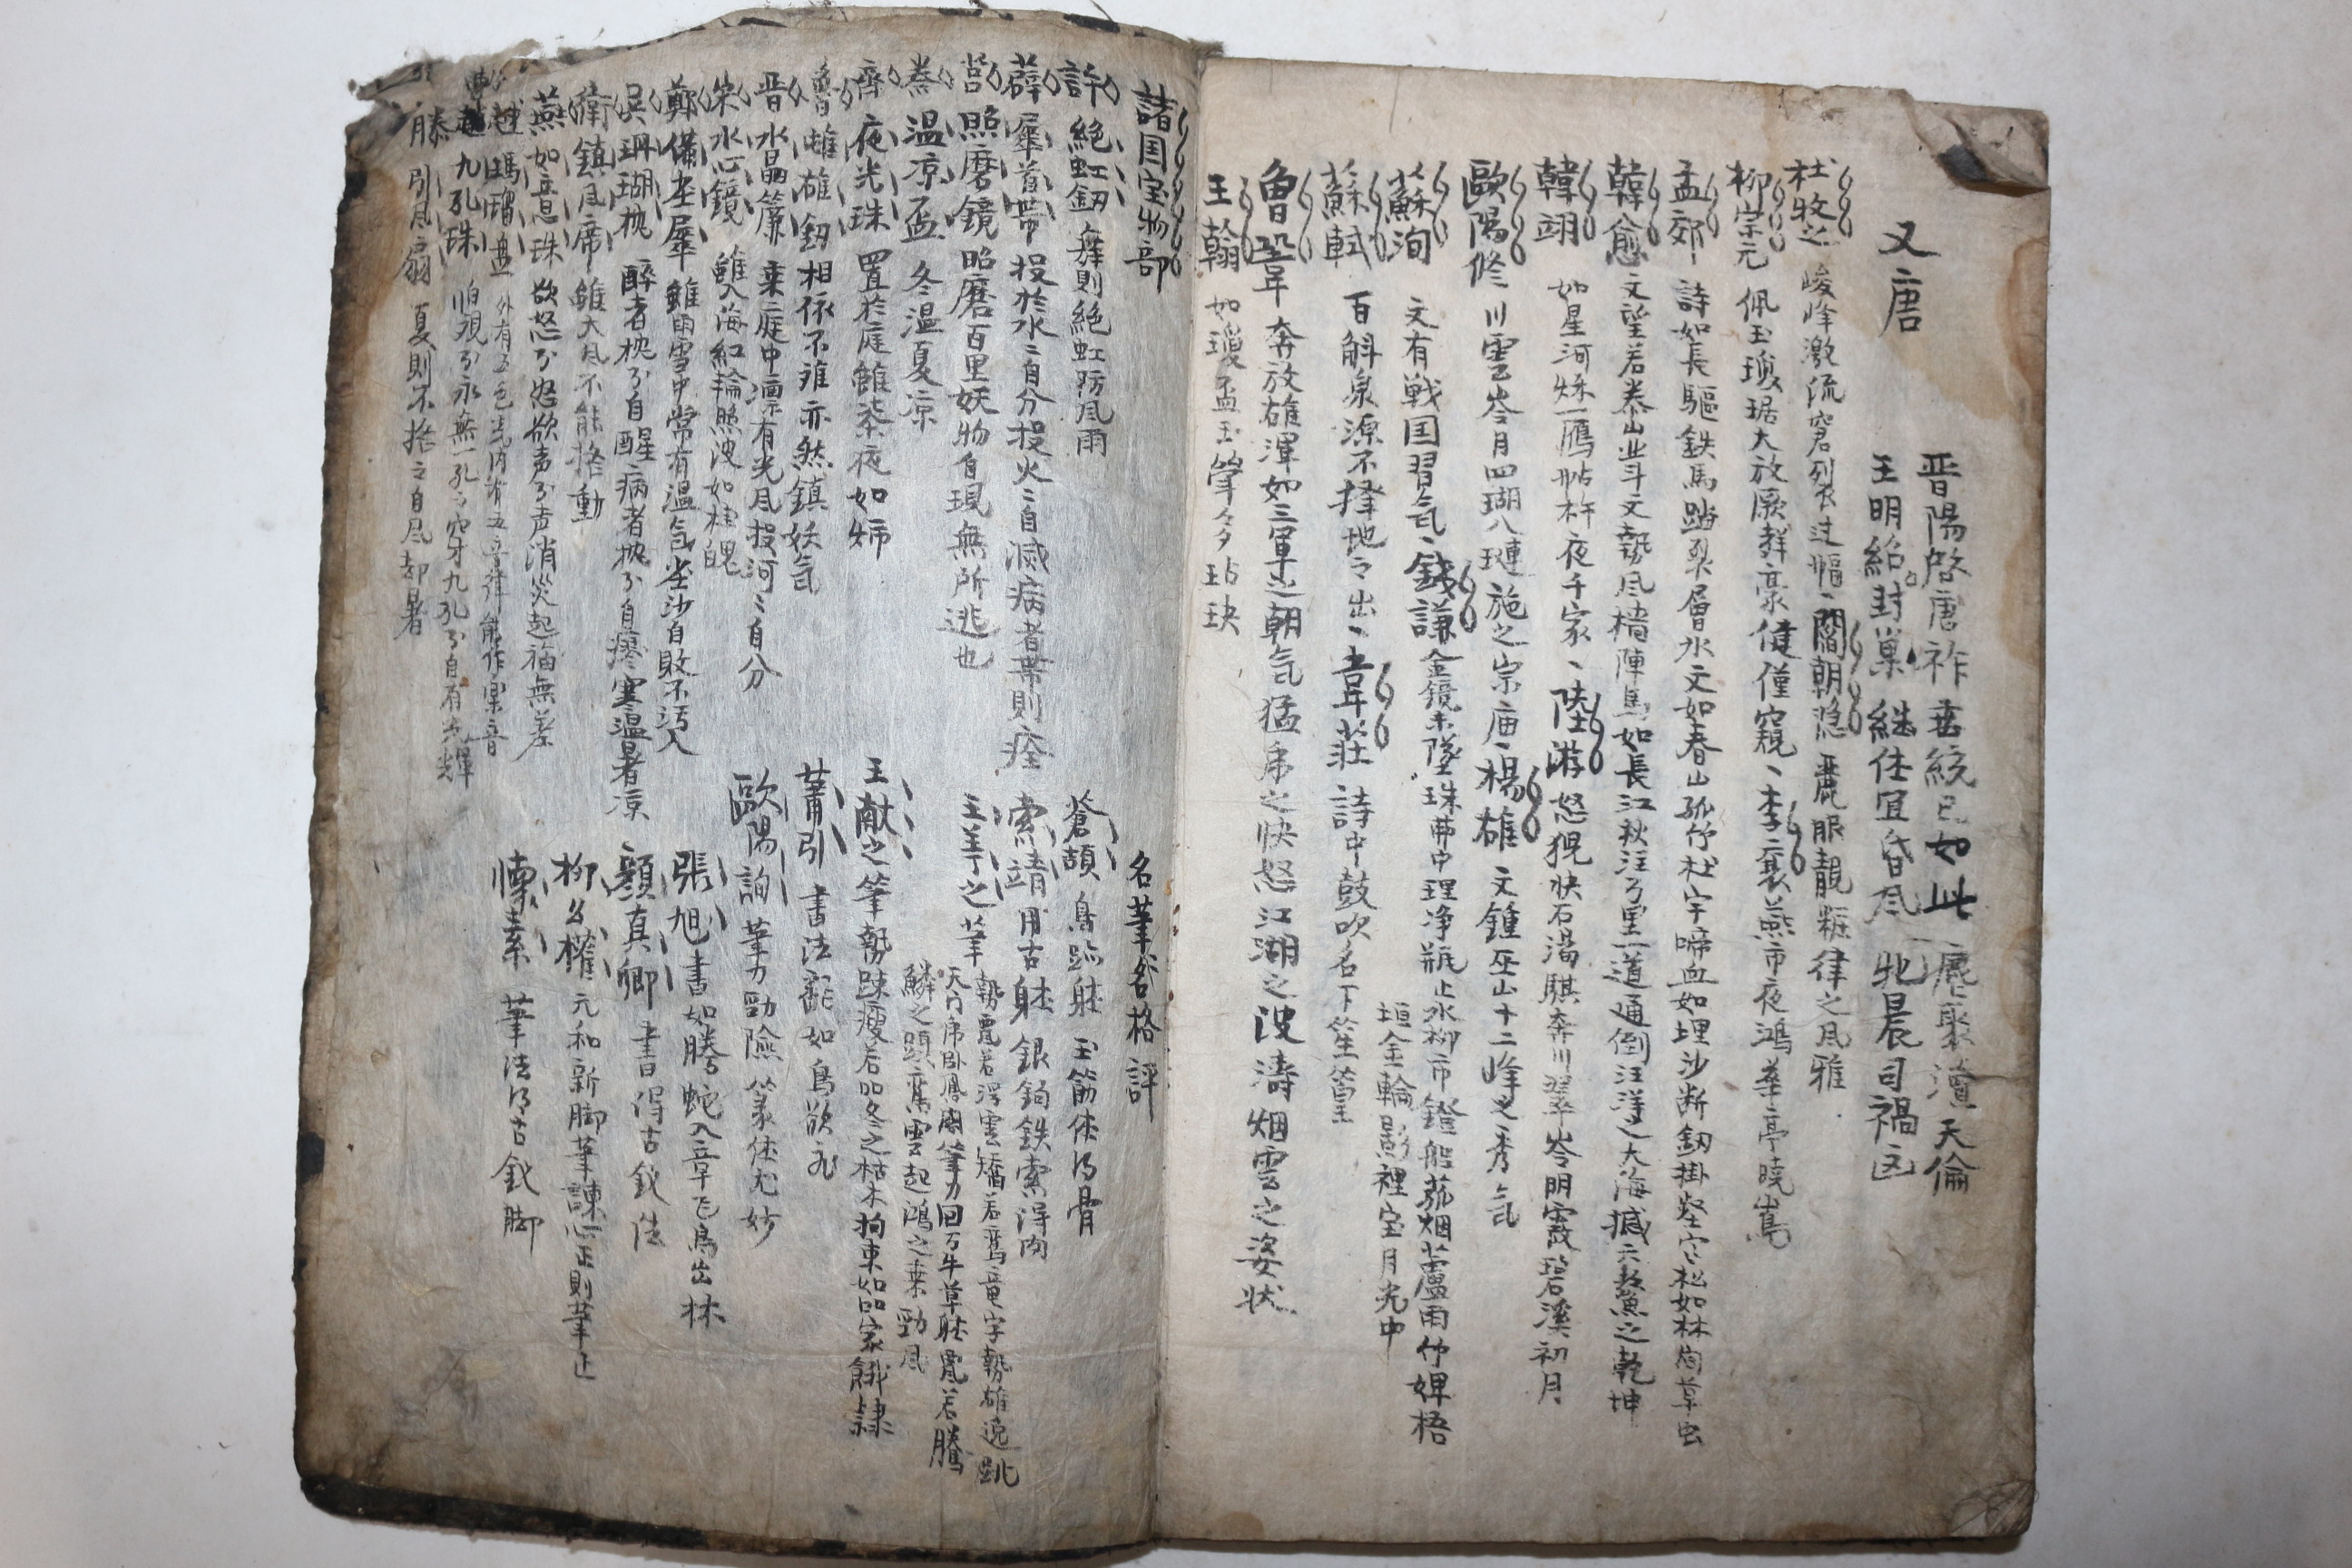 又唐
晋陽啓唐祚垂統已如此麀聚瀆天倫
王明紿封巢継住宜昏風牝晨司禍区
杜牧之峻峰激流窘列衣过幅、閻朝隐麗服靚粧律之風雅
柳宗元佩玉瓊琚大放厥辞豪健僅窺、李衮燕市夜鴻華亭曉鳥
孟郊詩如長驅鉄馬踏裂層氷文如春山孤竹杜宇啼血如埋沙断釼掛壁寒松如林間草虫
韓愈文望若泰山北斗文勢風檣陣馬如長江秋注万里一道通倒汪洋之大海撼六鰲之乾坤
韓翊如星河秋一鴈砧杵夜千家、陸游怒猊抉石渴騏奔川翠岺明霞碧溪初月
歐陽修川雲岺月四瑚八璉施之宗庙、楊雄文鍾巫山十二峰之秀气
蘇洵文有戦国習気、錢謙金鏡未墜珠帯中理净瓶止水柳市鐙船菰烟蘆雨竹婢梧
垣金輪影裡宝月光中
蘇軾百斛泉源不擇地而出、韋莊詩中鼓吹名下笙簧
魯鞏奔放雄渾如三軍之朝气猛虎之快怒江湖之波濤烟雲之姿状
王翰如瓊盃玉斝令多玷玦
諸国宝物部
許絶虹釼舞則絶虹防風雨
薛犀首帶投於水水自分投火火自滅病者帶則痊
莒照磨鏡昭磨百里妖物自現無所逃也
蔡温凉盃冬温夏凉
齊夜光珠置於庭雖柒夜如姉
魯雌雄釼相依不雜亦然鎮妖气
晋水晶簾垂庭中而有光風投河河自分
宋水心鏡雖入海紅輪照波如桂魄
鄭備塵犀雖雨雪中常有温气尘沙自敗不汚人
吳珊瑚枕醉者枕ㄅ自醒病者枕ㄅ自瘳寒温暑凉
衛鎮風席雖大風不能捲動
燕如意珠欲怒ㄅ怒欲声ㄅ声消災起福無差
越瑪瑠盘外有五色光内有五音律能作楽音
趙九孔珠怕視ㄅ永無一孔孔穴才九孔ㄅ自有光輝
滕引風扇夏則不捨之自風却暑
名筆名格評
蒼頡鳥跡躰玉筯体得骨
索靖用古躰銀鉤鉄索得肉
王羲之筆勢飄若浮雲矯若驚竜字勢雄逸跳
天門虎卧鳳閣筆力回万牛草躰飄若騰
鱗之躍駕雲起鴻之乗勁風
王献之筆勢疎瘦若如冬之枯木拘束如如家餓隷
蕭引書法翩如鳥欲飛
歐陽詢筆力勁險篆体尤妙
張旭書如騰蛇入草飞鳥出林
顔真卿書得古釵法
柳公權元和新脚筆諫心正則筆正
懐素筆法得古釵脚